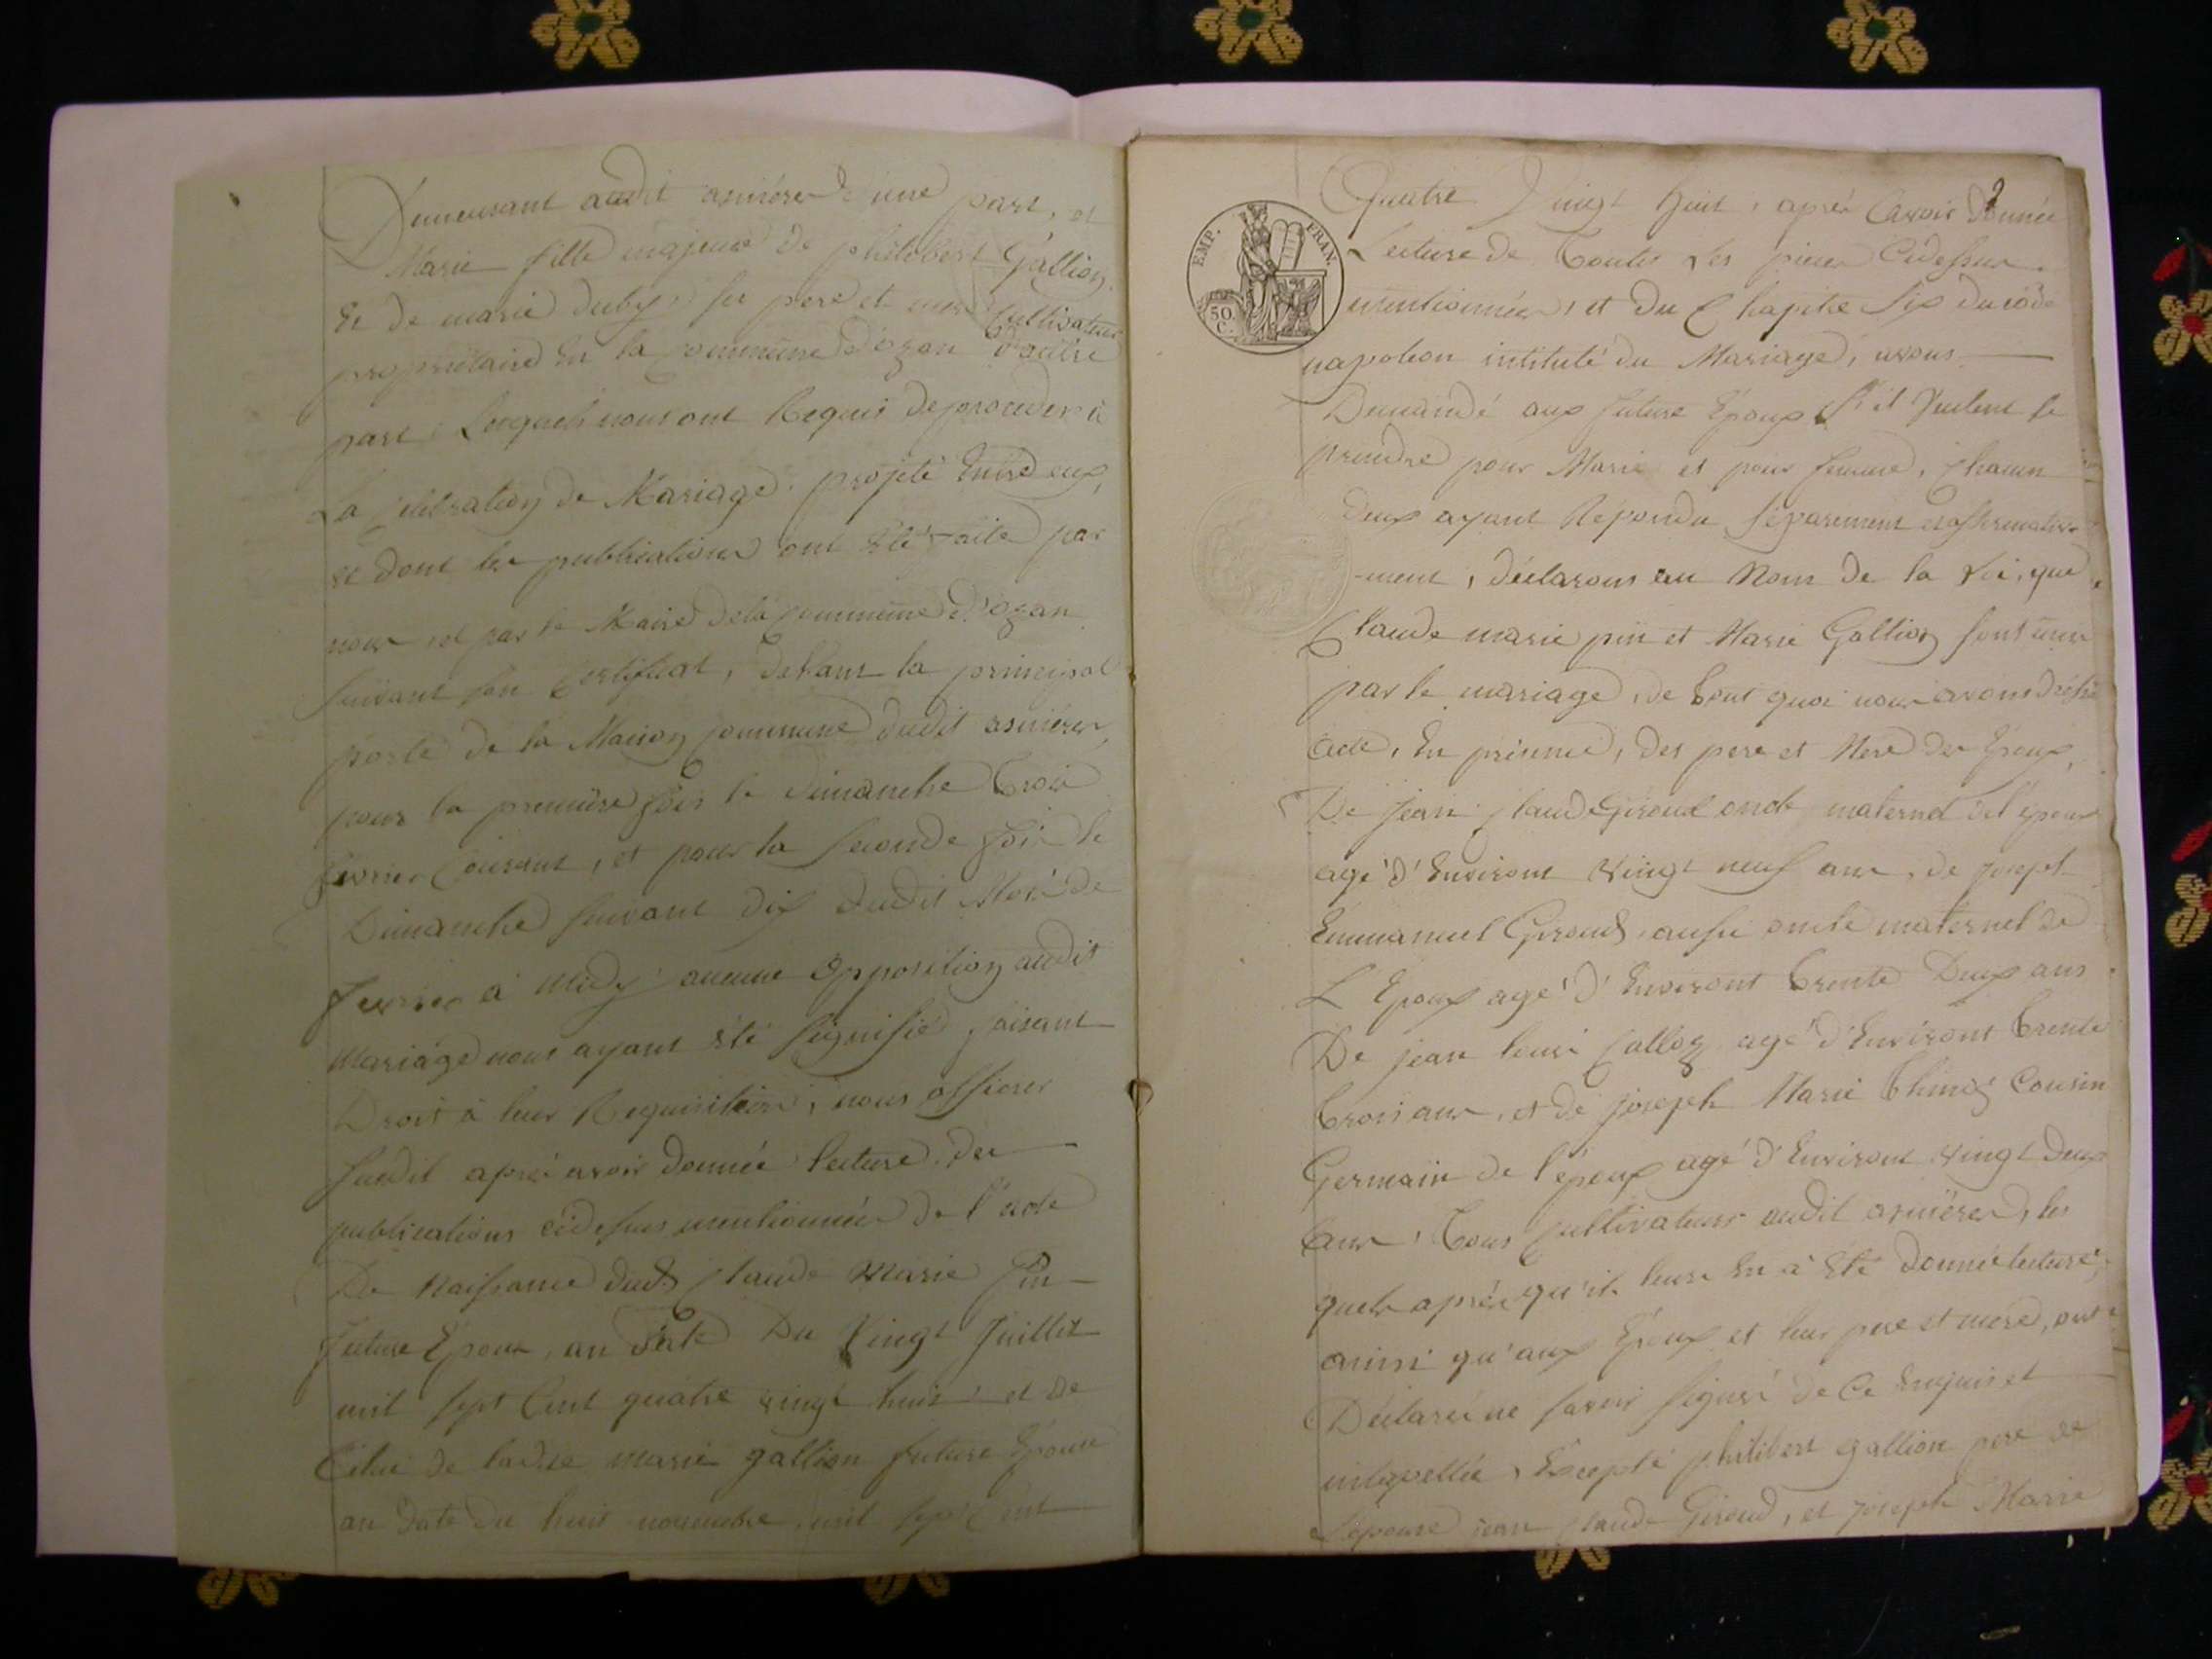 Demeurant audit asnieres d'une part, et
Marie fille majeure de philibert Gallion
Et de marie duby ses pere et mere Cultivateur
proprietaire En la Commune d'ozan d'autre
part Lesquels nous ont Requis de proceder à
La Célébration de Mariage projeté Entre eux,
et dont les publications ont Eté faite par
nous et par le Maire de la Commune d'ozan
Suivant son Certificat, devant la principal
porte de la Maison Commune dudit asnieres,
pour la premiere fois le dimanche trois
fevrier Courant, et pour la seconde fois le
Dimanche suivant dix dudit Mois de
fevrier à Midy aucune opposition audit
Mariage nous ayant été signifié, faisant
Droit à leur Requisition, nous officier
Susdit aprés avoir donnée lecture des
publications cidessus mentionnées de l'acte
De Naissance dudt Claude Marie Pin
future Epoux, an date Du Vingt Juillet
mil sept Cent quatre vingt huit et de
Celui de ladite marie gallion future Epouse
an date du huit novembre mil sept Cent
2
Quatre Vingt huit, aprés avoir donnée
Lecture de Toutes Les pieces Cidessus
mentionnées, et du Chapitre Six du code
EMP. FRAN.
50 C.
napoleon intitulé du Mariage, avons
Demandé aux future Epoux S'il Veulent se
prendre pour Marie et pour femme, Chacun
deux ayant Repondu séparement et affirmative
-ment, déclarons au Nom de la Loi, que
Claude marie pin et Marie Gallion sont unis
par le mariage, de tout quoi nous avons dressé
acte, En présence, des pere et Mere des Epoux,
De jean Claude Giroud oncle maternel de l'époux
agé d'Environt vingt neuf ans, de joseph
Emmanuel Giroud aussi oncle maternel de
L'Epoux agé d'Environt trente Deux ans
De jean louis agé d'Environt trente
trois ans, et de joseph Marie Cousin
Germain de l'époux agé d'Environt vingt deux
ans, Tous Cultivateurs audit asnieres, les
quels aprés qu'il leurs En à Eté donnée lecture,
ainsi qu'aux Epoux et leur pere et mére, ont
Déclaré ne savoir signer de Ce Enquis et
interpellée, Excepté philibert gallion pere de
l'epouse jean Claude Giroud, et joseph Marie